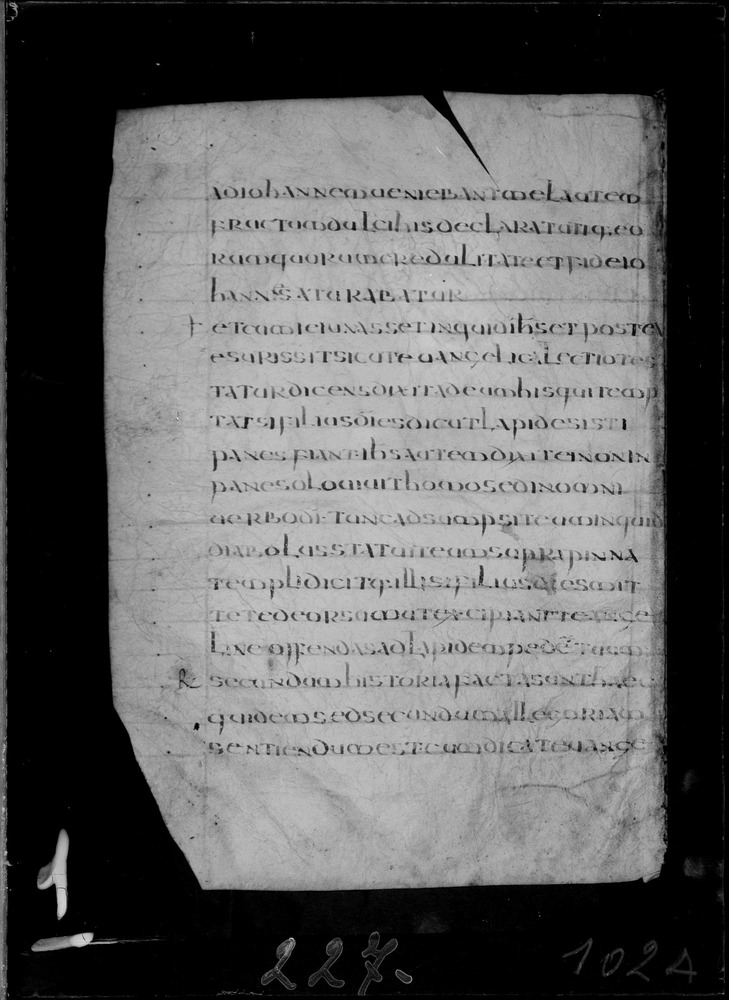 adiohannemueniebantmelautem
fructumdulcihisdeclaraturq.eo
rumquorumcredulitateetfideio
hannẽsaturabatur
† etcumieiunassetinquidih̅setposte
esurissitsicuteuangelicalectiotes
taturdicensdixitadeumhisquitemp
tatsifiliusdi̅esdicutlapidesisti
panesfiantih̅sautemdixiteinonin
panesolouiuithomosedinomni
uerbodi̅·tuncadsumpsiteuminquid
diabolusstatuiteumsuprapinna
templidicitq.illisifiliusdi̅esmit
tetedeorsumutexcipiantteange
lineoffendasadlapidempedẽtuum
R secundumhistoriafactasunthaec
quidemsedsecundumallegoriam
sentiendumesteumdicateuange
1
227.
102A